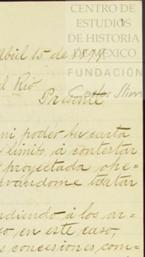 CENTRO DE
ESTUDIOS
DE HISTORIA
DE MÉXICO
FUNDACIÓN
Abril 15 de 1899
el Rio
Presente
mi poder su carta
limito, á contestar
projectada, ofre-
servandome tratar
endiendo á los ar-
go, en este caso,
s concesiones, com-